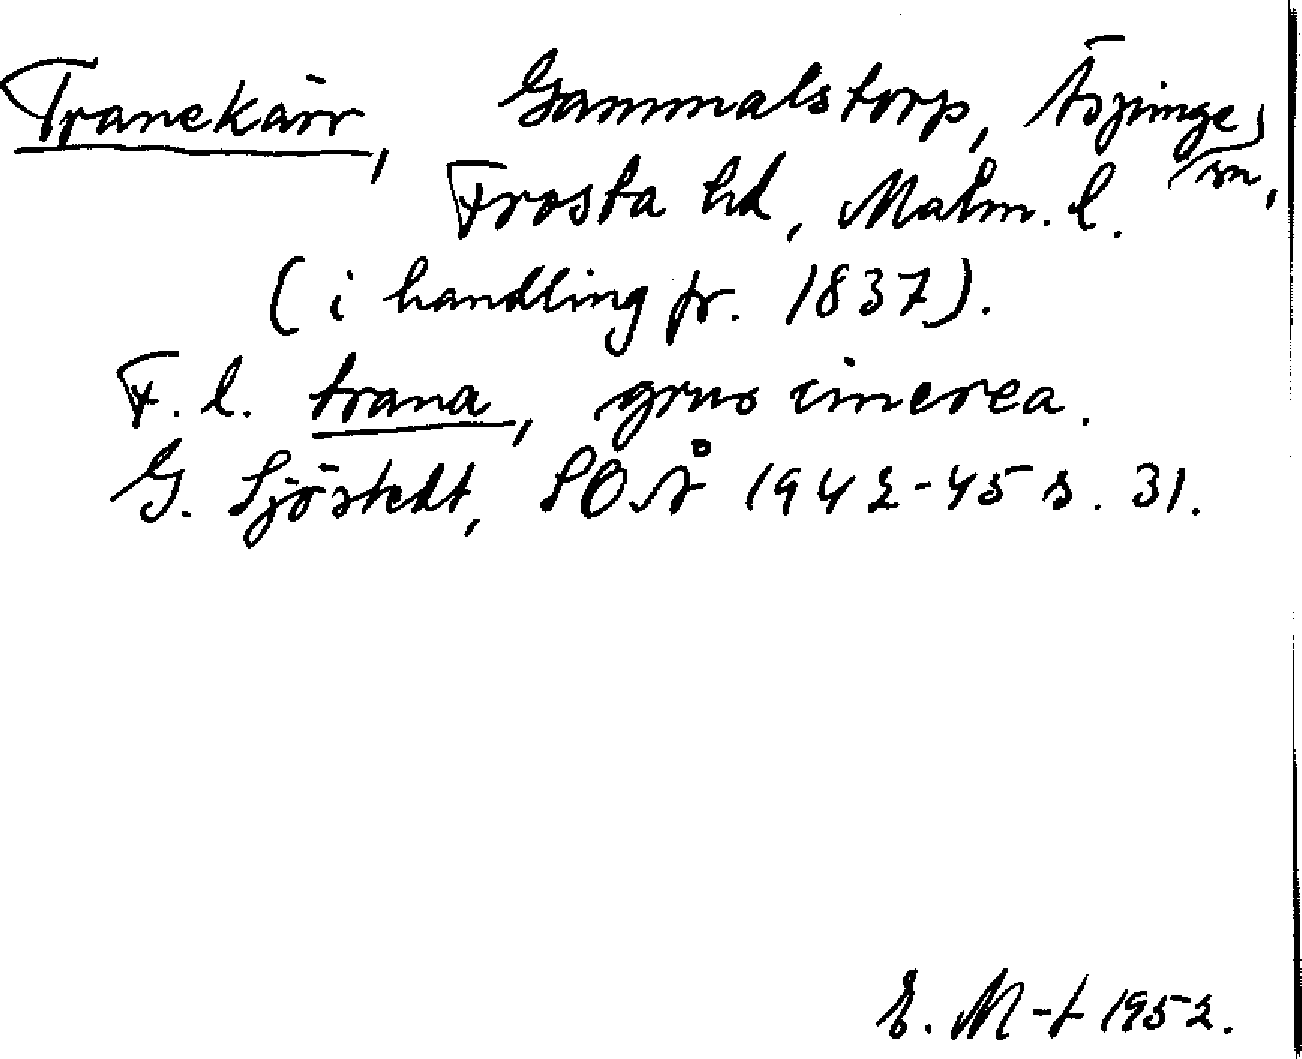 Tranekärr, Gammalstorp, Äspinge sn,
Frosta hd, Malm. l.
(i handling fr. 1837).
F. l. trana, grus cinerea.
G. Sjöstedt, SOSÅ 1942-45 s. 31.
E. M-t 1952.